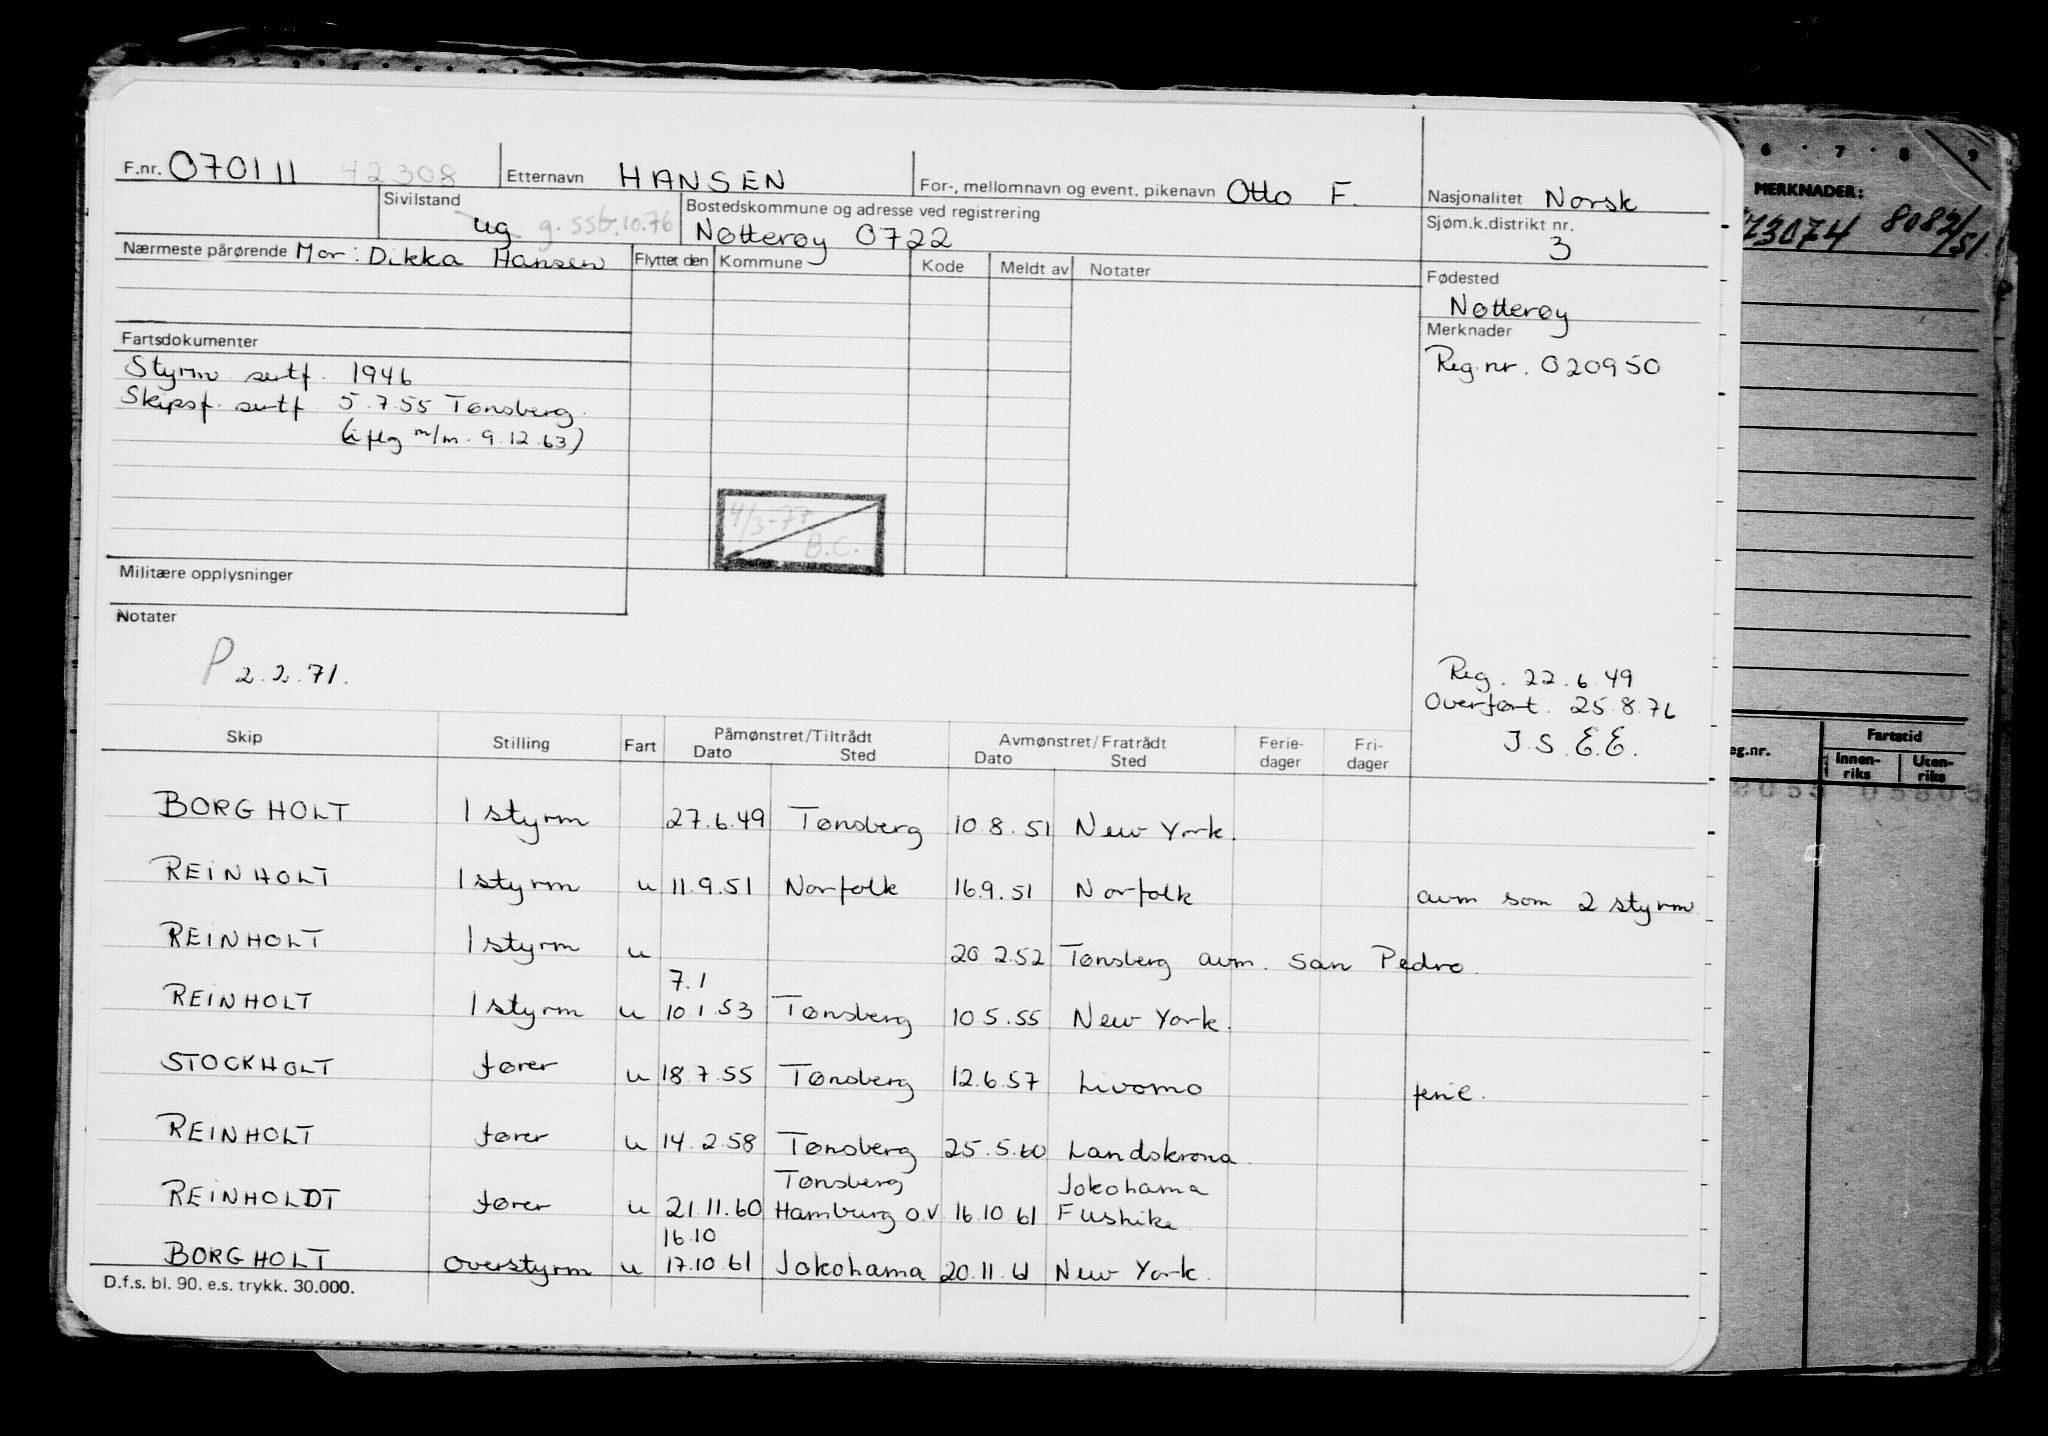 F.nr. 070111 42308 Etternavn HANSEN For-, mellomnavn og event. pikenavn Otto F. Nasjonalitet Norsk
Sivilstand ug g. ssb. 10.76 Bostedskommune og adresse ved registrering Nøtterøy 0722 Sjøm.k.distrikt nr. 3
Nærmeste pårørende Mor: Dikka Hansen Flyttet den Kommune Kode Meldt av Notater
Fødested
Nøtterøy
Merknader
Reg.nr. 020950
Fartsdokumenter
Styrm sertf. 1946
Skipsf. sertf. 5.7.55 Tønsberg.
(iflg m/m. 9.12.63)
4/3-77
B.C.
Militære opplysninger
Notater
P 2.2.71.
Reg. 22.6.49
Overført. 25.8.76
J.S. E.E.
Skip Stilling Fart Påmønstret/Tiltrådt Avmønstret/Fratrådt Ferie-dager Fri-dager
Dato Sted Dato Sted
BORGHOLT 1 styrm 27.6.49 Tønsberg 10.8.51 New York.
REINHOLT 1 styrm u 11.9.51 Norfolk 16.9.51 Norfolk avm som 2 styrm
REINHOLT 1 styrm u 20.2.52 Tønsberg avm. San Pedro.
7.1
REINHOLT 1 styrm u 10.1.53 Tønsberg 10.5.55 New York.
STOCKHOLT fører u 18.7.55 Tønsberg 12.6.57 Livorno ferie.
REINHOLT fører u 14.2.58 Tønsberg 25.5.60 Landskrona.
Tønsberg Jokohama
REINHOLDT fører u 21.11.60 Hamburg o.v 16.10.61 Fushike
16.10
BORGHOLT Overstyrm u 17.10.61 Jokohama 20.11.61 New York.
D.f.s. bl. 90. e.s. trykk. 30.000.
6 7 8 9
MERKNADER:
73074 8082/51
eg.nr. Fartstid
Innen-riks Uten-riks